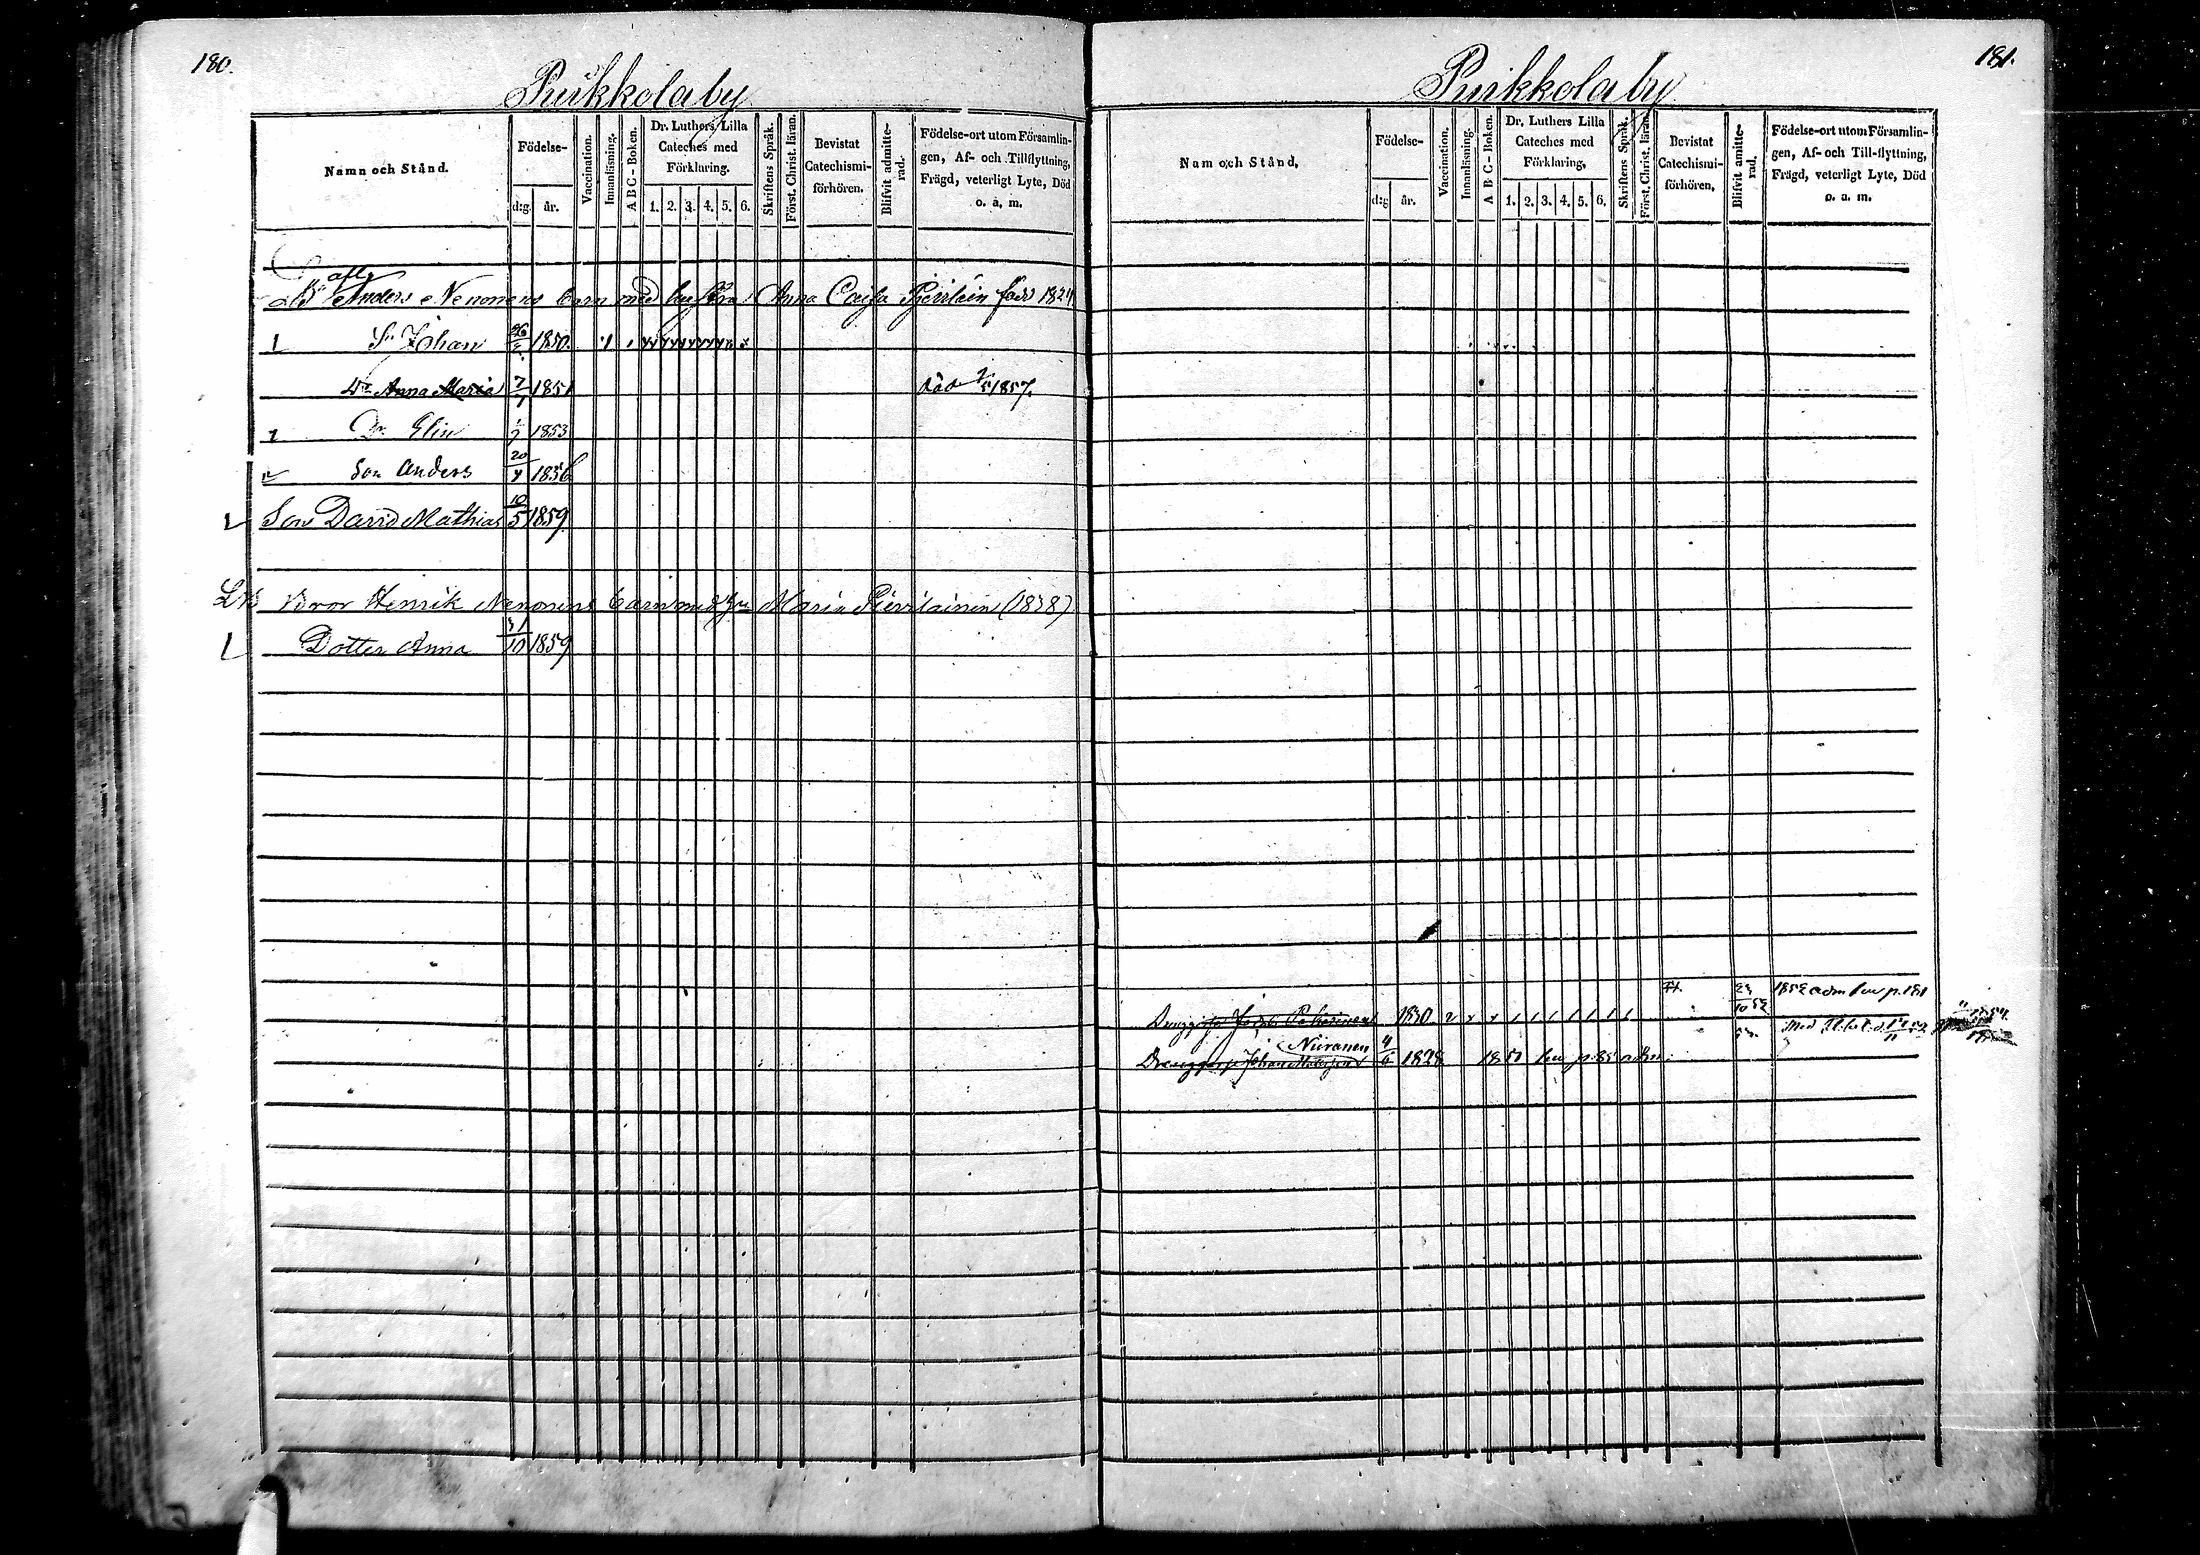 180.
Puikkola by
Namn och Stånd.
Födelse-
d:g.
år.
Vaccination.
Innanläsning.
A B C - Boken.
Dr. Luthers Lilla
Cateches med
Förklaring.
1. 2. 3. 4. 5. 6.
Skriftens Språk.
Först. Christ. läran.
Bevistat
Catechismi-
förhören.
Blifvit admitte-
rad.
Födelse-ort utom Församlin-
gen, Af- och Tillflyttning,
Frägd, veterligt Lyte, Död
o. a. m.
Anders Nenonens barn med hustru Anna Caisa född 1824
Sn Johan 1850.
Dr Anna Maria 7/1 1851 död 1857.
Dr. Elin 1853
Son Anders 20 1856
Son David Mathias 10/5 1859
Bror Henrik Nenonens barn med Maria Pierilainen (1838)
Dotter Anna 31/10 1859
181.
Puikkola by
Namn och Stånd.
Födelse-
d:g
år.
Vaccination.
Innanläsning.
A B C - Boken.
Dr. Luthers Lilla
Cateches med
Förklaring.
1. 2. 3. 4. 5. 6.
Skriftens Språk.
Först. Christ. läran.
Bevistat
Catechismi-
förhören.
Blifvit amitte-
rad.
Födelse-ort utom Församlin-
gen, Af- och Till-flyttning,
Frägd, veterligt Lyte, Död
o. a. m.
1852 adm p. 181
1830
Niiranen
Johan 4/6 1828 1851 p. 85 adm.